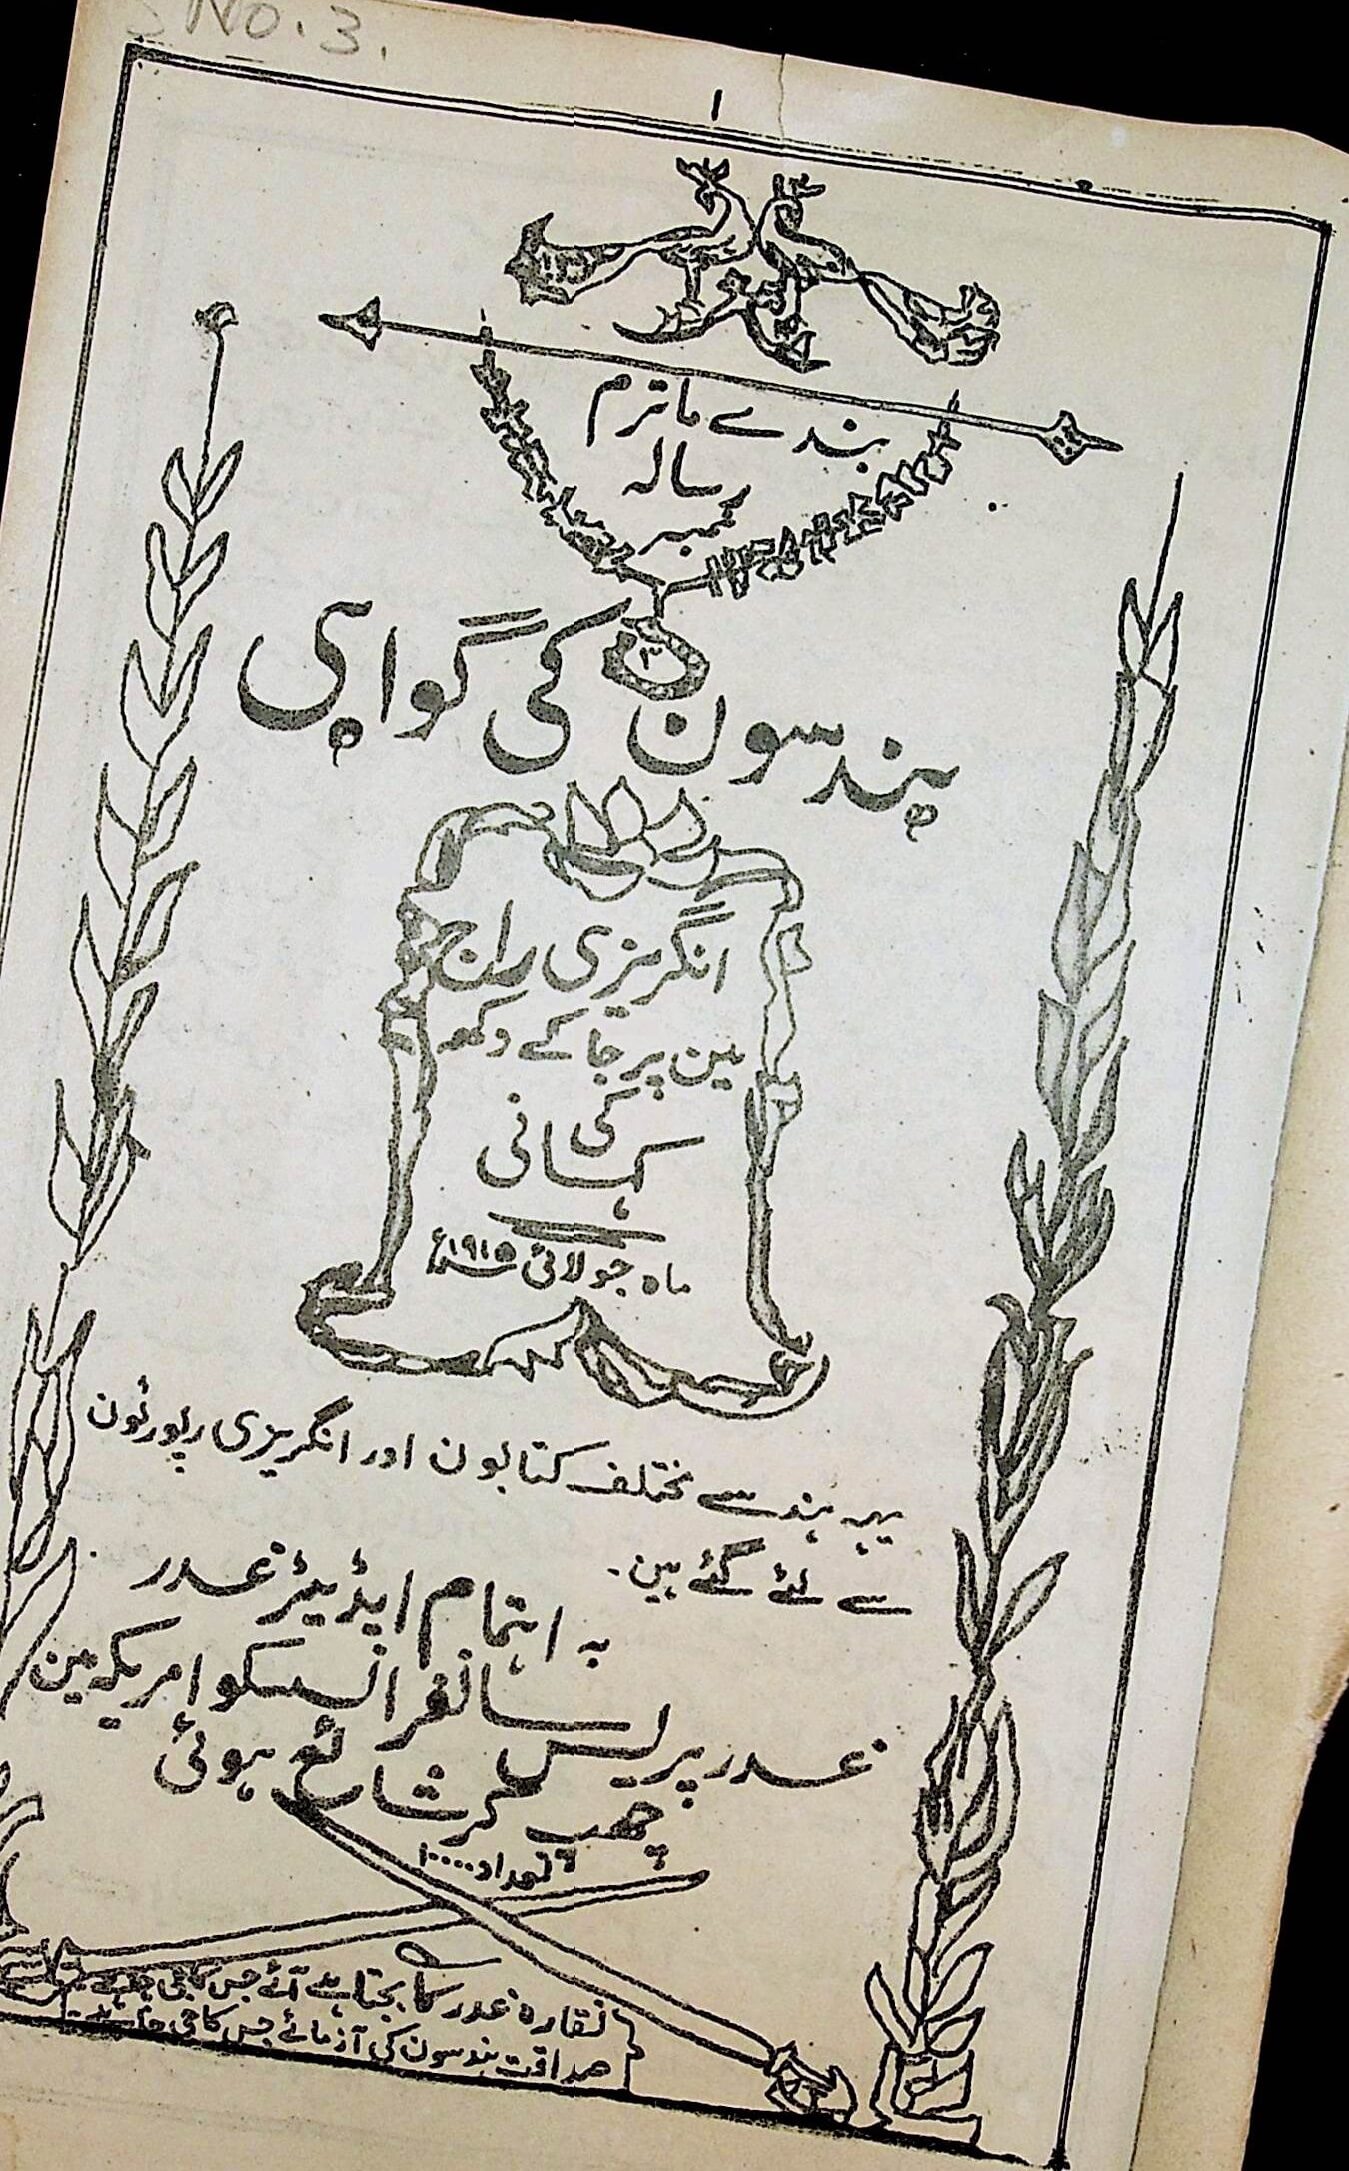 No. 3.
۱
بندے ماترم
رسالہ
نمبر
۳
ہندسون کی گواہی
انگریزی راج
مین پرجا کے دکھ
کی
کہانی
ماہ جولائی ۱۹۱۵ء
یہہ ہندسے مختلف کتابون اور انگریزی رپورٹون
سے لئے گئے ہین۔
بہ اہتمام ایڈیٹر غدر
غدر پریس سانفرانسسکو امریکہ مین
چھپ کر شائع ہوئی
تعداد ۱۰۰۰۰
نقارہ غدر کا بجتا ہے آئے جس کا جی چاہے
صداقت ہندسون کی آزمائے جس کا جی چاہے